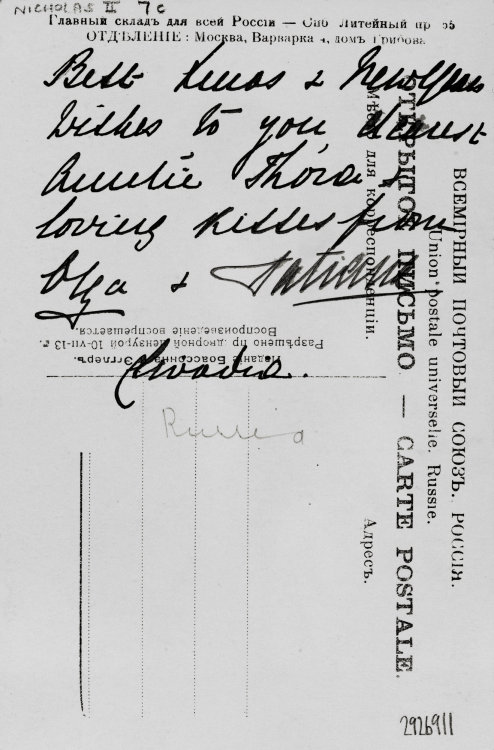 NICHOLAS II 7c
Главный складъ для всей Россіи — Спб Литейный пр
ОТДѢЛЕНІЕ: Москва, Варварка 4, домъ Грибова
Best Xmas & New Years
wishes to you dearest
Auntie Thora &
loving kisses from
Olga & Tatiana
Livadia.
Russia
ВСЕМІРНЫЙ ПОЧТОВЫЙ СОЮЗЪ. РОССІЯ.
Union postale universelle. Russie.
ОТКРЫТОЕ ПИСЬМО — CARTE POSTALE.
Мѣсто для корреспонденціи.
Адресъ.
Изданіе Боассонна Эгглеръ.
Разрѣшено пр дворной цензурой 10-VII-13 г.
Воспроизведеніе воспрещается.
2926911